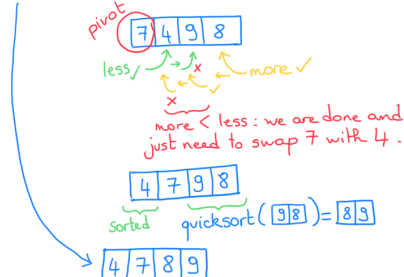 pivot
7 4 9 8
less ✓ → x more ✓
x ← ✓
more < less : we are done and
just need to swap 7 with 4.
4 7 9 8
sorted quicksort ( 9 8 ) = 8 9
4 7 8 9